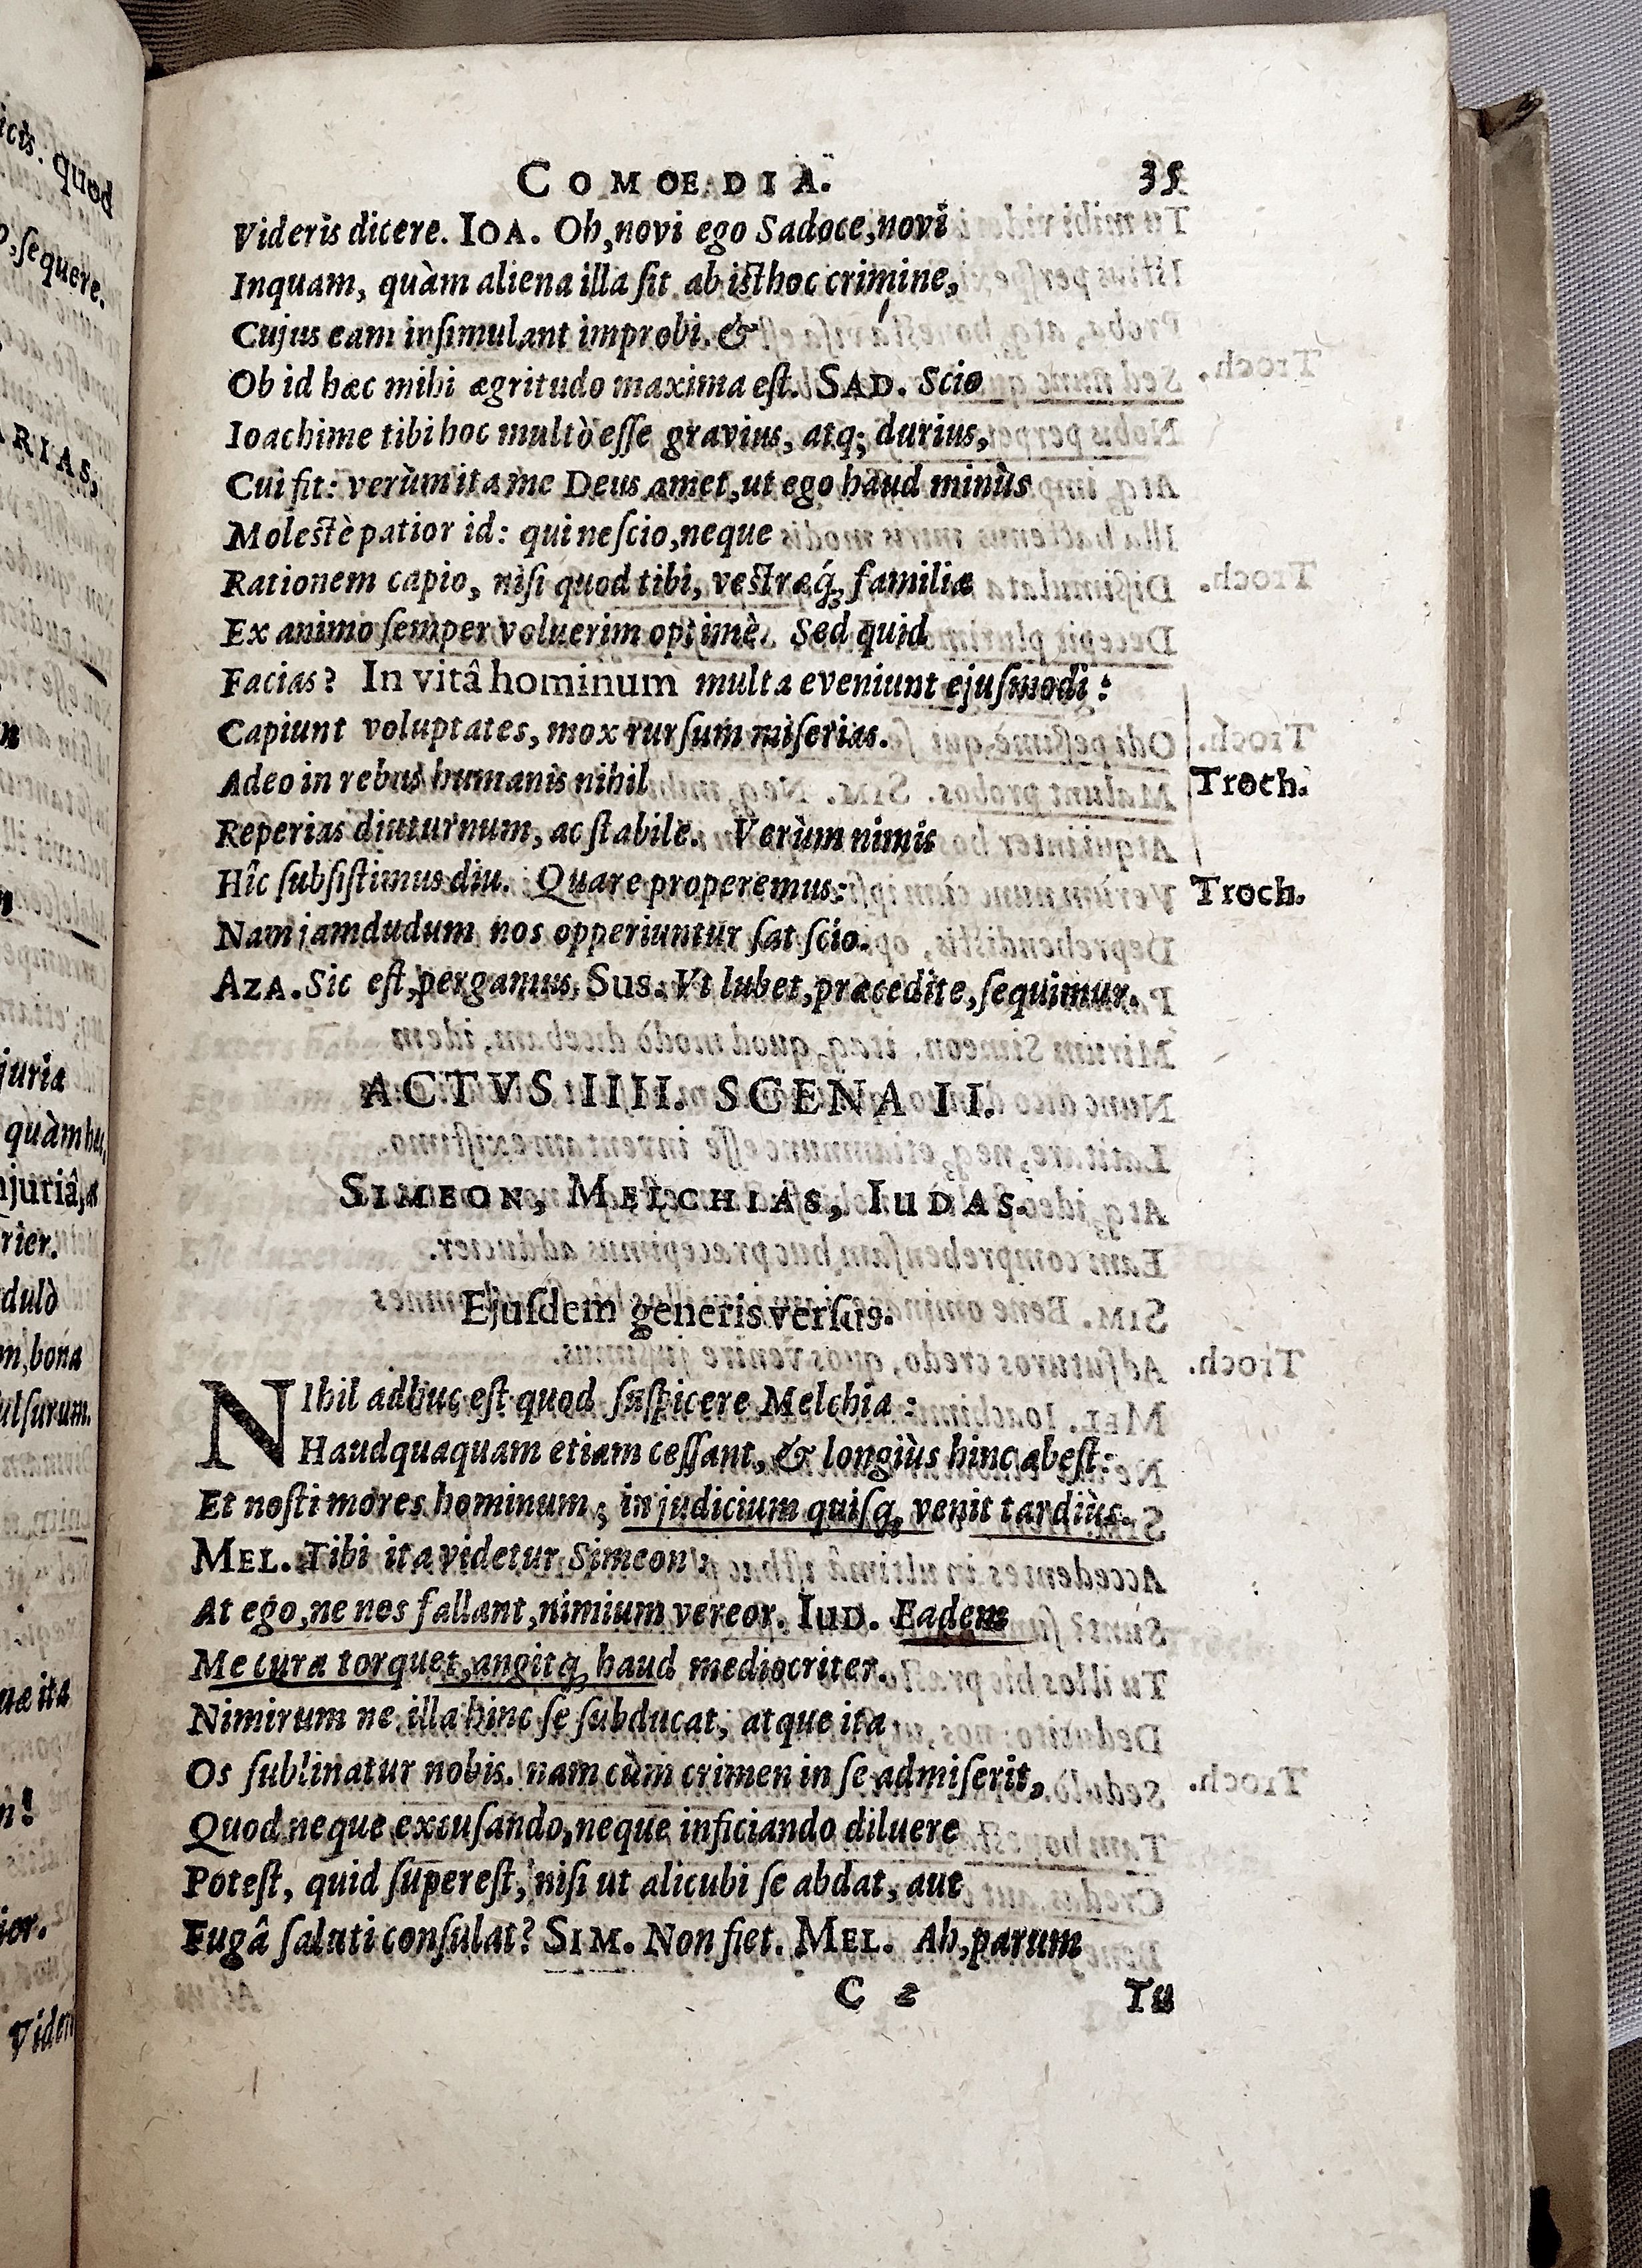 COMOEDIA. 35
Videris dicere. IOA. Oh, novi ego Sadoce, novi
Inquam, quàm aliena illa sit ab isthoc crimine,
Cujus eam insimulant improbi. &
Ob id hæc mihi ægritudo maxima est. SAD. Scio
Ioachime tibi hoc multò esse gravius, atq; durius,
Cui fit: verùm ita me Deus amet, ut ego haud minùs
Molestè patior id: qui nescio, neque
Rationem capio, nisi quod tibi, vestræq́; familiæ
Ex animo semper voluerim optimè. Sed quid
Facias? In vitâ hominum multa eveniunt ejusmodi:
Capiunt voluptates, mox rursum miserias.
Adeo in rebus humanis nihil Troch.
Reperias diuturnum, ac stabile. Verùm nimis
Hîc subsistimus diu. Quare properemus: Troch.
Nam jamdudum nos opperiuntur sat scio.
AZA. Sic est, pergamus. SUS. Vt lubet, præcedite, sequimur.
ACTVS IIII. SCENA II.
SIMEON, MELCHIAS, IUDAS.
Ejusdem generis versus.
NIhil adhuc est quod suspicere Melchia:
Haudquaquam etiam cessant, & longiùs hinc abest:
Et nosti mores hominum, in judicium quisq; venit tardiùs.
MEL. Tibi ita videtur Simeon:
At ego, ne nos fallant, nimium vereor. IUD. Eadem
Me cura torquet, angitq; haud mediocriter.
Nimirum ne illa hinc se subducat, atque ita
Os sublinatur nobis. nam cùm crimen in se admiserit,
Quod neque excusando, neque inficiando diluere
Potest, quid superest, nisi ut alicubi se abdat, aut
Fugâ saluti consulat? SIM. Non fiet. MEL. Ah, parum
C 2 Tu